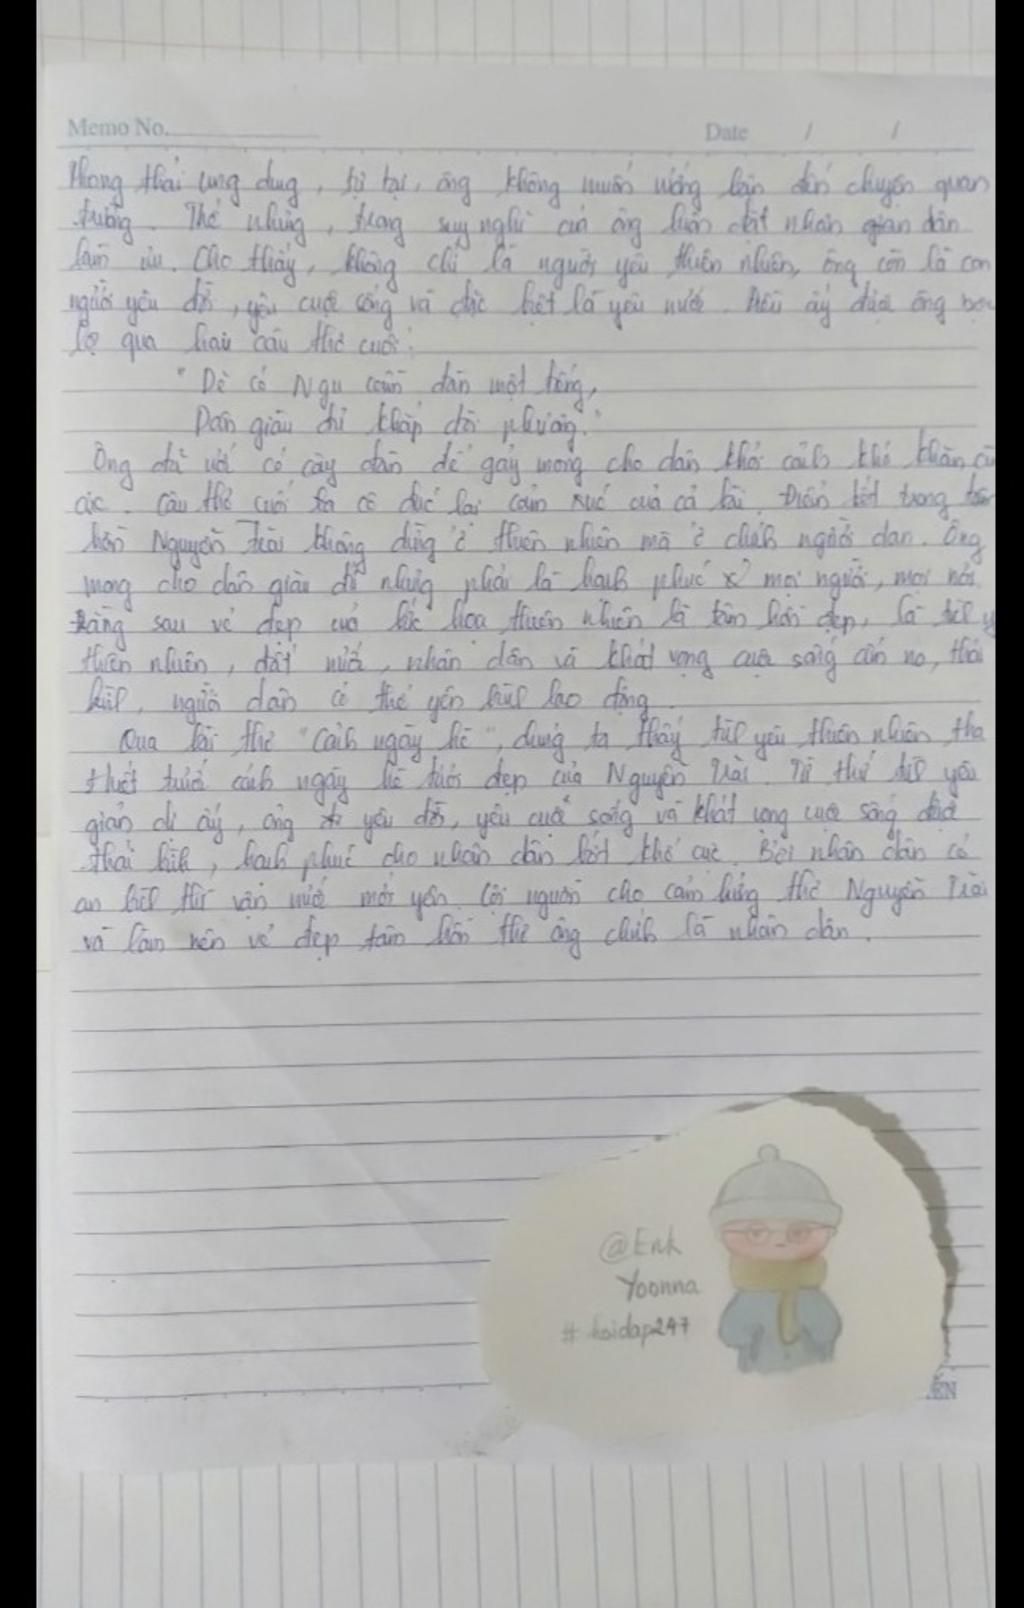 Memo No.
Date / /
Phong thái ung dung, tự tại, ông không muốn vướng bận đến chuyện quan
trường. Thế nhưng, trong suy nghĩ của ông luôn đặt nhân gian dân
làm ưu. Cho thấy, không chỉ là người yêu thiên nhiên, ông còn là con
người yêu đời, yêu cuộc sống và đặc biệt là yêu nước. Điều ấy được ông bọc
lộ qua hai câu thơ cuối:
"Dẽ có Ngu cầm đàn một tiếng,
Dân giàu đủ khắp đòi phương."
Ông đã ước có cây đàn để gảy mong cho dân thoát cảnh khó khăn cơ
cực. Câu thơ cuối đúc lại cảm xúc của cả bài. Điểm kết trong tâm
hồn Nguyễn Trãi không dừng ở thiên nhiên mà ở chính người dân. Ông
mong cho dân giàu đủ nhưng phải là hạnh phúc ở mọi người, mọi nơi.
Đằng sau vẻ đẹp của bức họa thiên nhiên là tâm hồn đẹp, là tình y
thiên nhiên, đất nước, nhân dân và khát vọng cuộc sống ấm no, thái
bình, người dân có thể yên bình lao động.
Qua bài thơ "Cảnh ngày hè", chúng ta thấy tình yêu thiên nhiên tha
thiết trước cảnh ngày hè tươi đẹp của Nguyễn Trãi. Từ thứ tình yêu
giản dị ấy, ông yêu đời, yêu cuộc sống và khát vọng cuộc sống được
thái bình, hạnh phúc cho nhân dân bớt khổ cực. Bởi nhân dân có
an bình thì vận nước mới yên. Cội nguồn cho cảm hứng thơ Nguyễn Trãi
và làm nên vẻ đẹp tâm hồn thơ ông chính là nhân dân.
@Enk
Yoonna
# hoidap247
ẾN